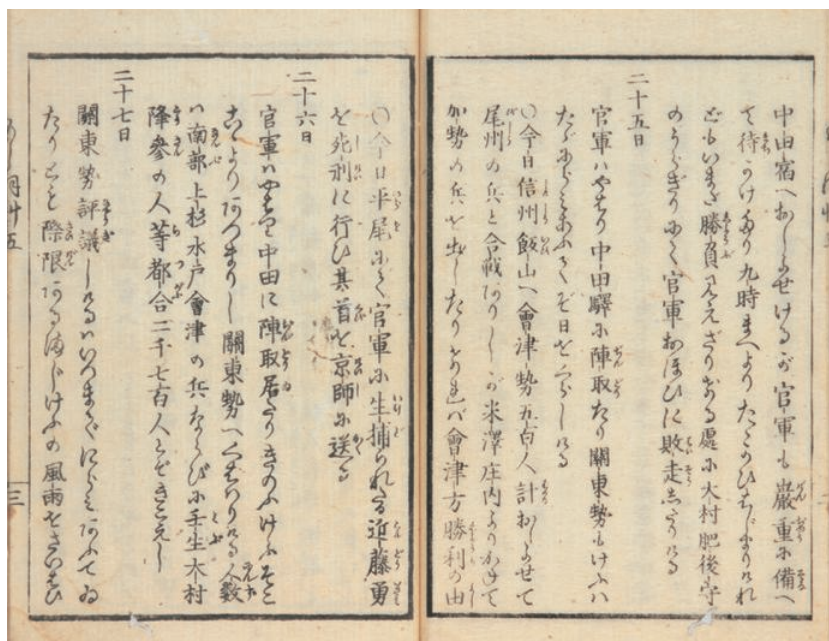 中田宿へおしよせけるが官軍も嚴重に備へ
て待かけたり九時まへよりたゝかひはじまりけれ
どもいまだ勝負見えざりける處に大村肥後守
のうらぎりにて官軍おほひに敗走したりける
二十五日
官軍ハやはり中田驛に陣取たり關東勢もけふハ
たがひににらみあふて日をくらしける
〇今日信州飯山へ會津勢五百人計おしよせて
尾州の兵と合戰ありしが米澤庄内よりかねて
加勢の兵を出したりければ會津方勝利の由
〇今日平尾にて官軍に生捕られたる近藤勇
を死刑に行ひ其首を京師に送る
二十六日
官軍ハやはり中田に陣取居たりきのふけふそこ
こゝよりあつまりし關東勢へくははりける人數
ハ南部上杉水戸會津の兵ならびに壬生大村
降參の人等都合二千七百人とぞきこえし
二十七日
關東勢評議しけるハいつまでにらみあふてゐ
たりとも際限あるまじけふの風雨をさいはひ